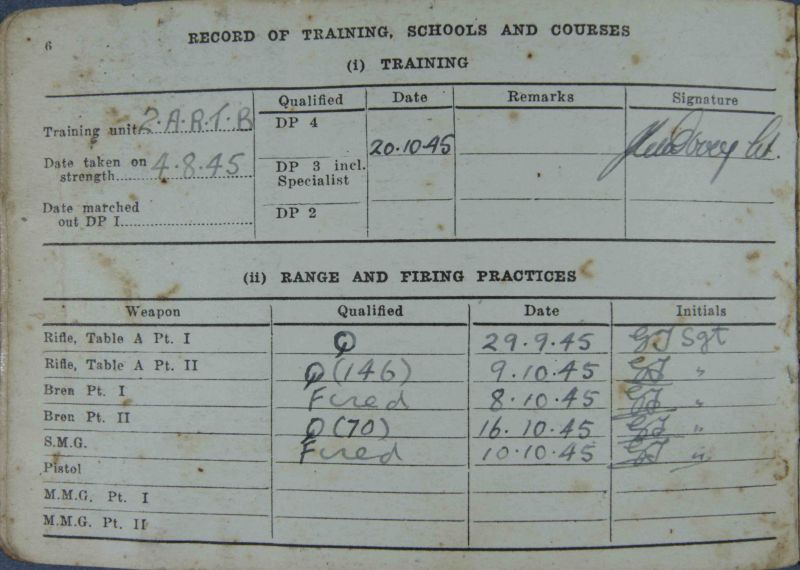 6
RECORD OF TRAINING, SCHOOLS AND COURSES
(i) TRAINING
Qualified Date Remarks Signature
Training unit 2.A.R.T.B DP 4
20.10.45 Lt.
Date taken on strength 4.8.45 DP 3 incl. Specialist
Date marched out DP I DP 2
(ii) RANGE AND FIRING PRACTICES
Weapon Qualified Date Initials
Rifle, Table A Pt. I Q 29.9.45 Sgt
Rifle, Table A Pt. II Q (146) 9.10.45 "
Bren Pt. I Fired 8.10.45 "
Bren Pt. II Q (70) 16.10.45 "
S.M.G. Fired 10.10.45 "
Pistol
M.M.G. Pt. I
M.M.G. Pt. II